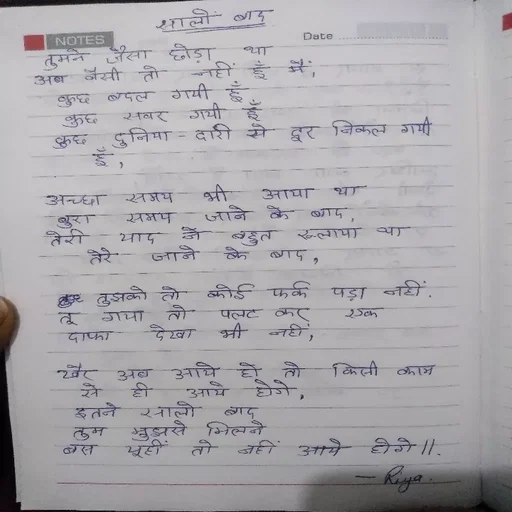 सालों बाद
NOTES
Date
तुमने जैसा छोड़ा था
अब वैसी तो नहीं हूँ मैं,
कुछ बदल गयी हूँ
कुछ सवर गयी हूँ
कुछ दुनिया-दारी से दूर निकल गयी
हूँ,
अच्छा समय भी आया था
बुरा समय जाने के बाद,
तेरी याद ने बहुत रूलाया था
तेरे जाने के बाद,
तुझको तो कोई फर्क पड़ा नहीं.
तू गया तो पलट कर एक
दाफा देखा भी नहीं,
खैर अब आये हो तो किसी काम
से ही आये होगे,
इतने सालो बाद
तुम मुझसे मिलने
बस यूहीं तो नहीं आये होगे||.
— Riya.